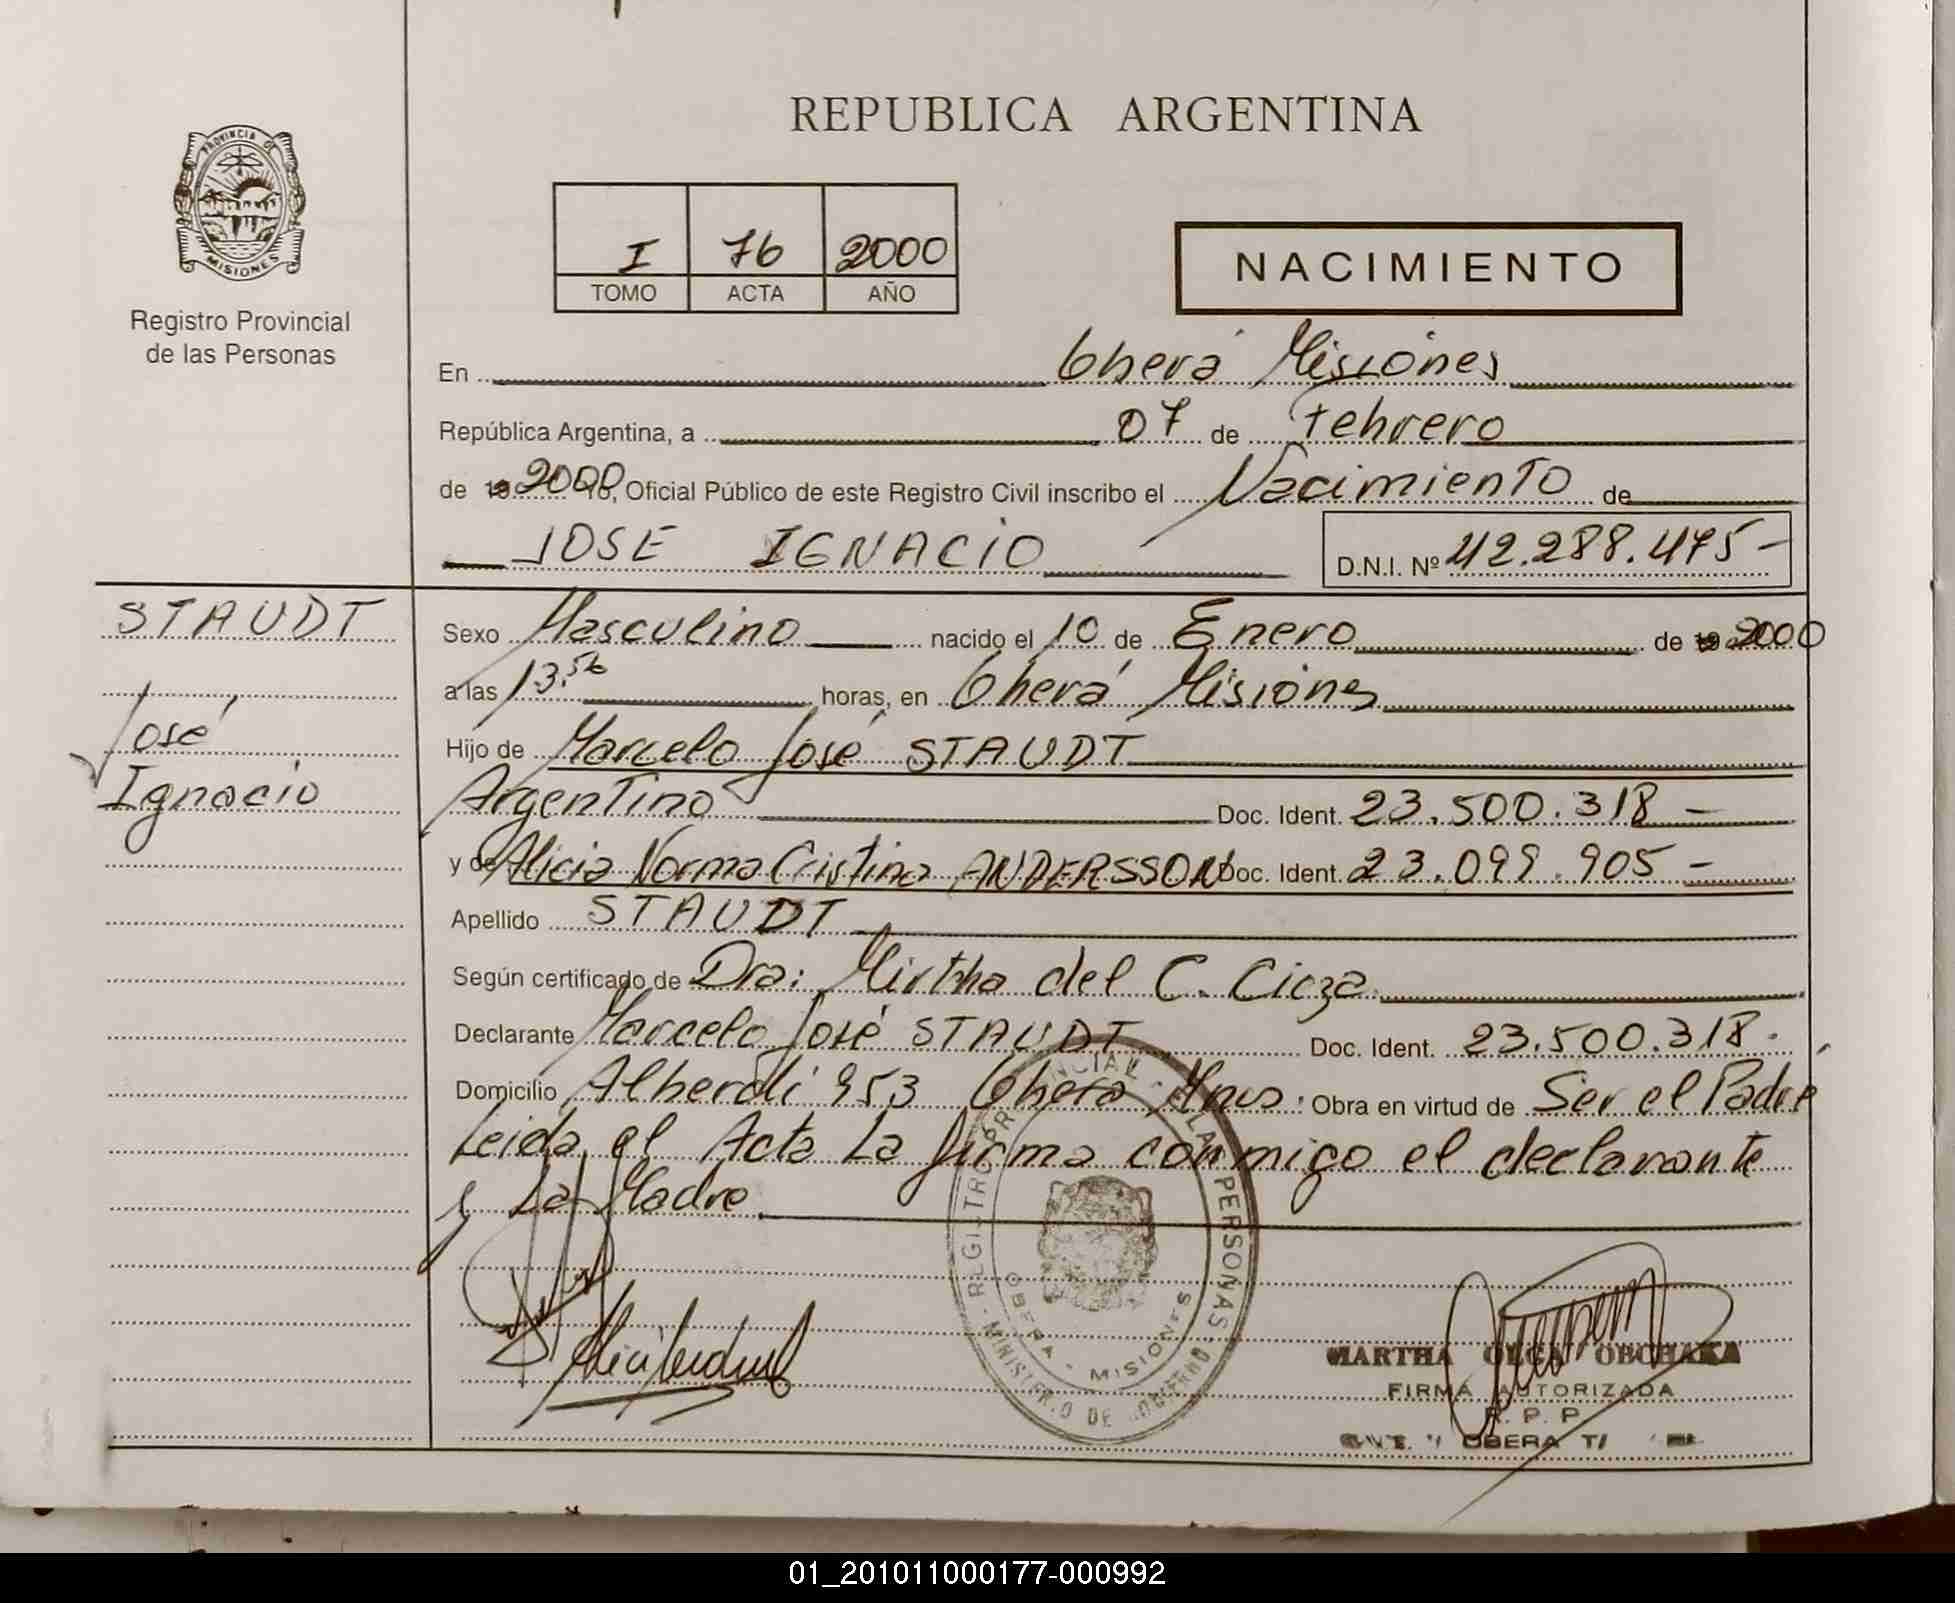 PROVINCIA DE
MISIONES
Registro Provincial
de las Personas
REPUBLICA ARGENTINA
I 76 2000
TOMO ACTA AÑO
NACIMIENTO
En Oberá Misiones
República Argentina, a 07 de Febrero
de 19 2000 Yo, Oficial Público de este Registro Civil inscribo el Nacimiento de
JOSE IGNACIO D.N.I. Nº 42.288.475-
STAUDT
José
Ignacio
Sexo Masculino nacido el 10 de Enero de 19 2000
a las 13.56 horas, en Oberá Misiones
Hijo de Marcelo José STAUDT
Argentino Doc. Ident. 23.500.318-
y de Alicia Norma Cristina ANDERSSON Doc. Ident. 23.099.905-
Apellido STAUDT
Según certificado de Dra: Mirtha del C.
Declarante Marcelo José STAUDT Doc. Ident. 23.500.318.
Domicilio Alberdi 953 Oberá Mnes. Obra en virtud de Ser el Padre
Leida el Acta La firma conmigo el declarante
y La Madre
REGISTRO PROVINCIAL DE LAS PERSONAS
MINISTERIO DE GOBIERNO
OBERA - MISIONES
MARTHA OLGA
FIRMA AUTORIZADA
R. P. P.
OBERA
01_201011000177-000992